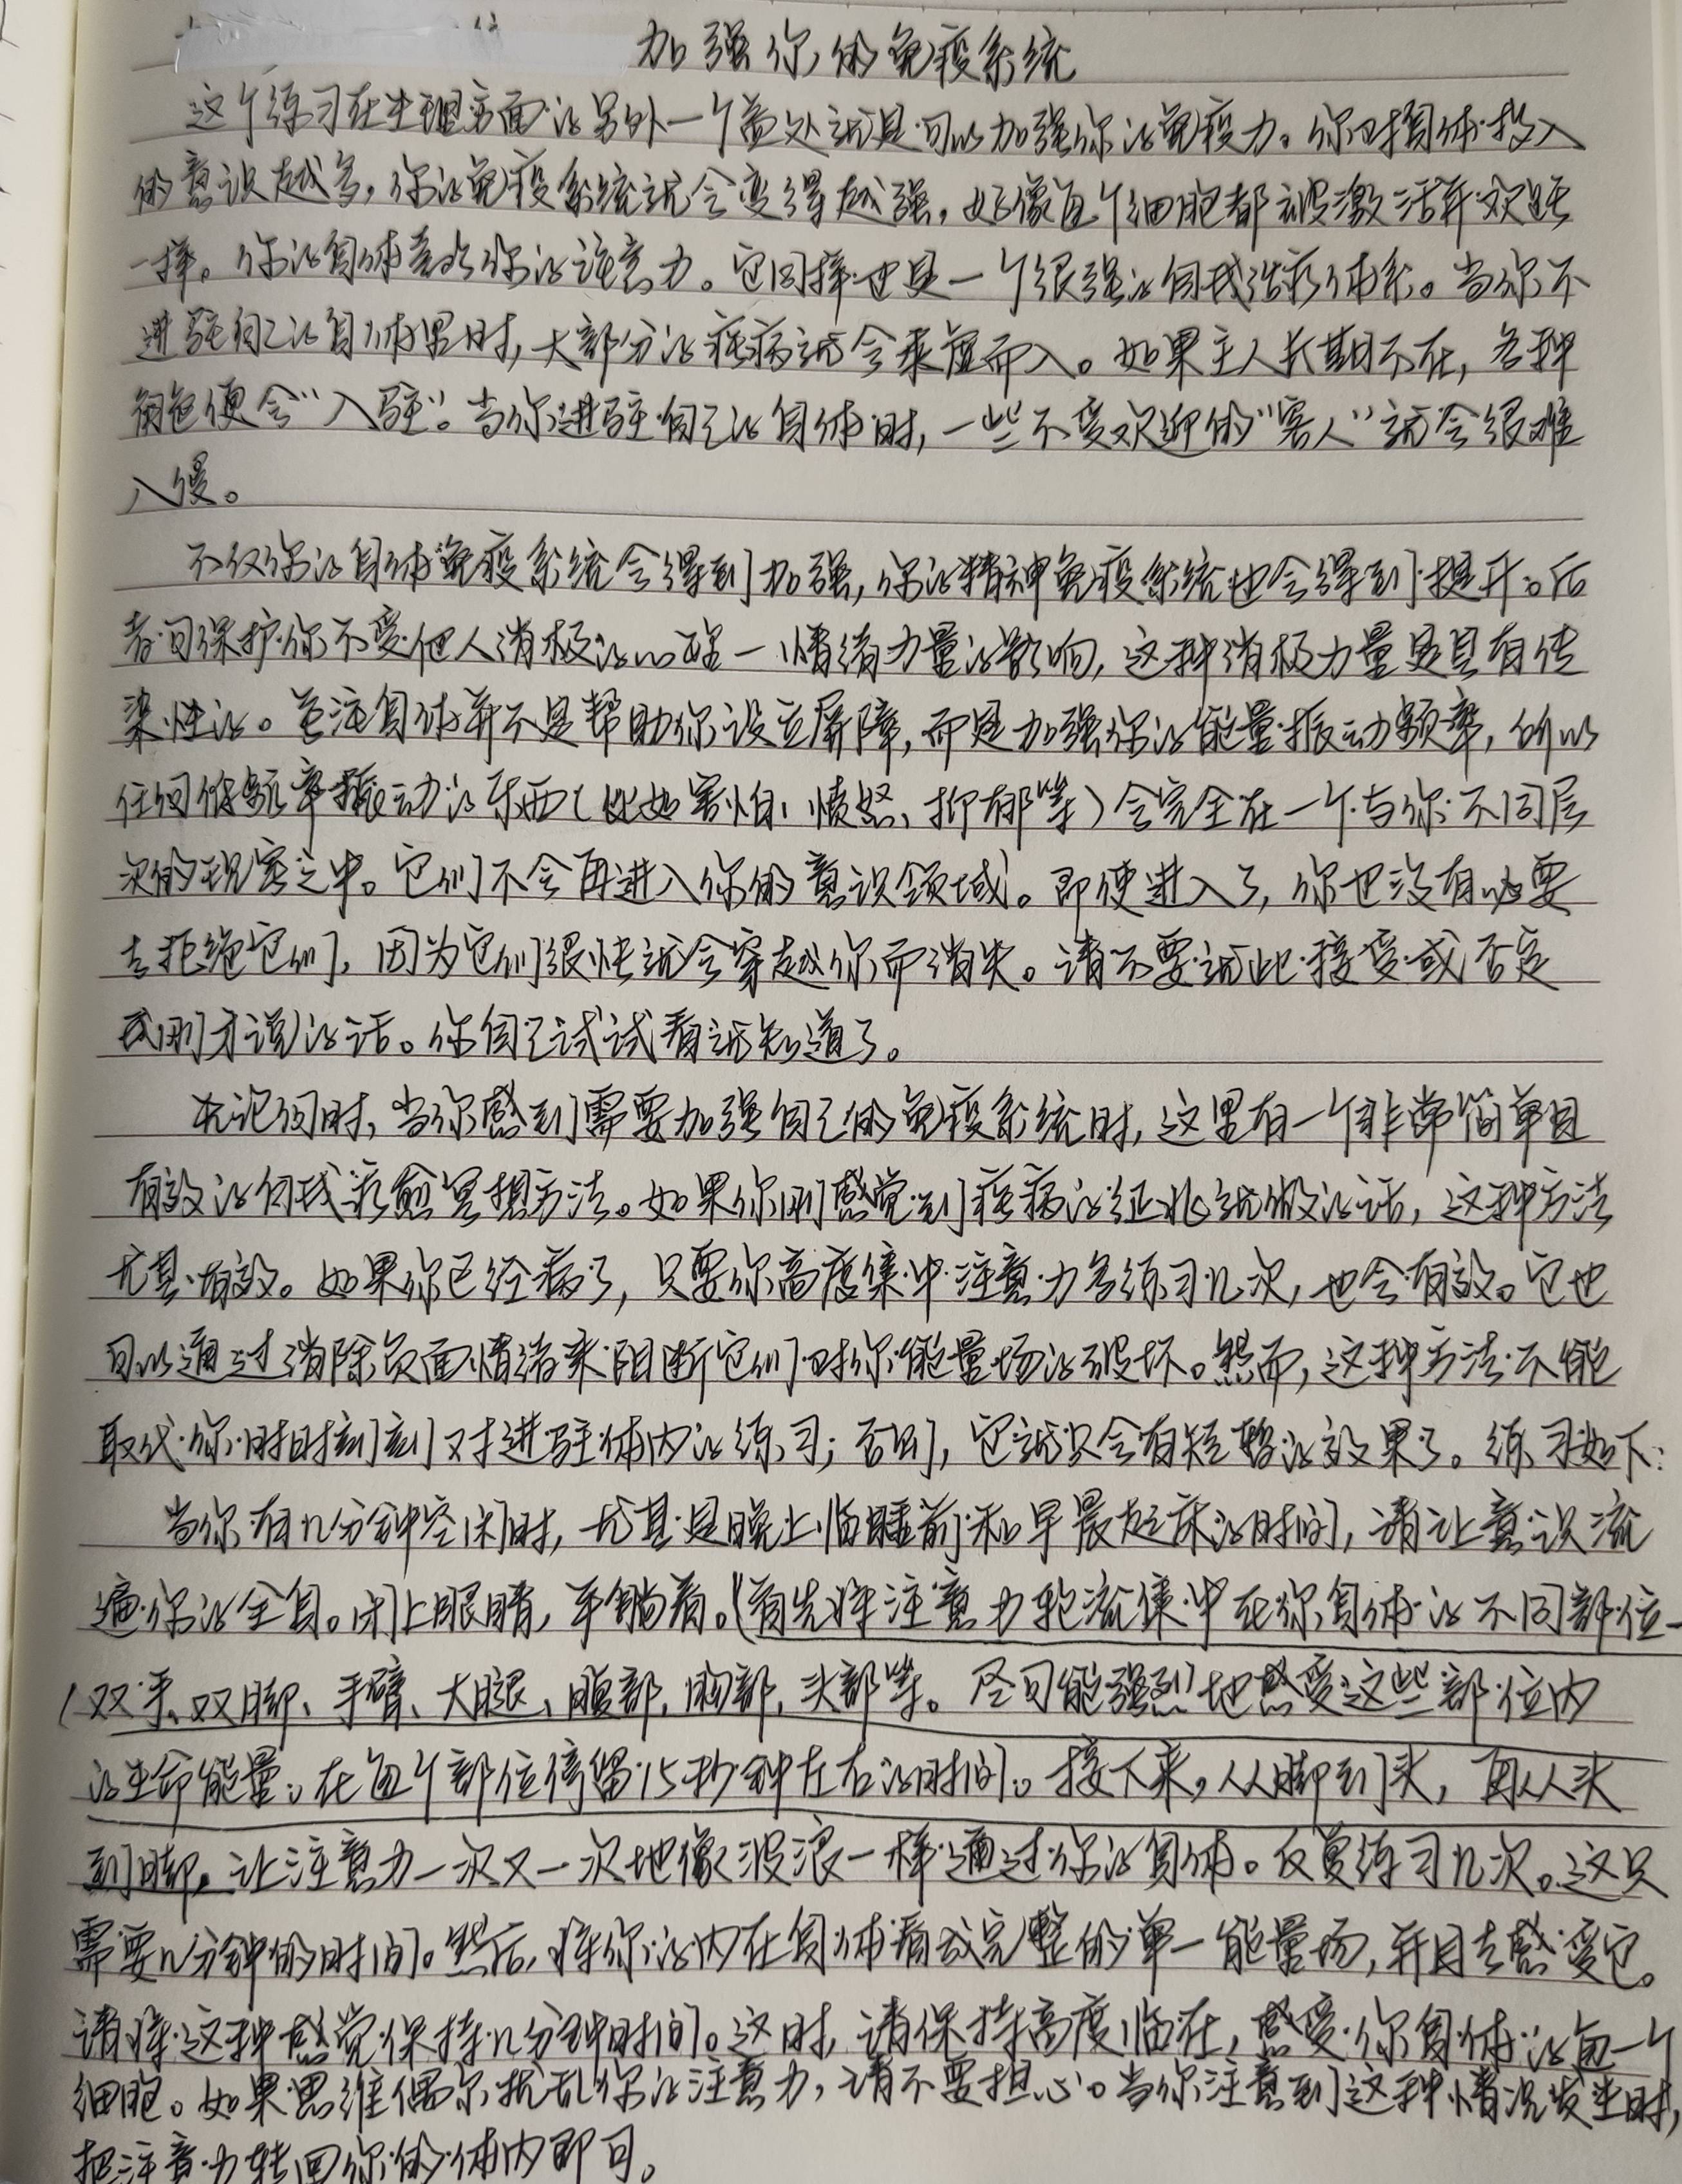 加强你的免疫系统
这个练习在生理方面的另外一个益处就是可以加强你的免疫力。你对身体投入
的意识越多，你的免疫系统就会变得越强，好像每个细胞都被激活并欢跃
一样。你的身体喜欢你的注意力。它同样也是一个很强的自我治疗体系。当你不
进驻自己的身体里时，大部分的疾病就会乘虚而入。如果主人长期不在，各种
角色便会“入驻”。当你进驻自己的身体时，一些不受欢迎的“客人”就会很难
入侵。
不仅你的身体免疫系统会得到加强，你的精神免疫系统也会得到提升。后
者可保护你不受他人消极的心理－情绪力量的影响，这种消极力量是具有传
染性的。关注身体并不是帮助你设立屏障，而是加强你的能量振动频率，所以
任何低频率振动的东西（比如害怕、愤怒、抑郁等）会完全在一个与你不同层
次的现实之中。它们不会再进入你的意识领域。即使进入了，你也没有必要
去拒绝它们，因为它们很快就会穿越你而消失。请不要就此接受或否定
我刚才说的话。你自己试试看就知道了。
无论何时，当你感到需要加强自己的免疫系统时，这里有一个非常简单且
有效的自我疗愈冥想方法。如果你刚感觉到疾病的征兆就做的话，这种方法
尤其有效。如果你已经病了，只要你高度集中注意力多练习几次，也会有效。它也
可以通过消除负面情绪来阻断它们对你能量场的破坏。然而，这种方法不能
取代你时时刻刻对进驻体内的练习；否则，它就只会有短暂的效果了。练习如下：
当你有几分钟空闲时，尤其是晚上临睡前和早晨起床的时间，请让意识流
遍你的全身。闭上眼睛，平躺着。（首先将注意力轮流集中在你身体的不同部位－
（双手、双脚、手臂、大腿、腹部，胸部，头部等。尽可能强烈地感受这些部位内
的生命能量。在每个部位停留15秒钟左右的时间。接下来，从脚到头，再从头
到脚，让注意力一次又一次地像波浪一样通过你的身体。反复练习几次。这只
需要几分钟的时间。然后，将你的内在身体看成完整的单一能量场，并且去感受它。
请将这种感觉保持几分钟时间。这时，请保持高度临在，感受你身体的每一个
细胞。如果思维偶尔扰乱你的注意力，请不要担心。当你注意到这种情况发生时，
把注意力转回你的体内即可。